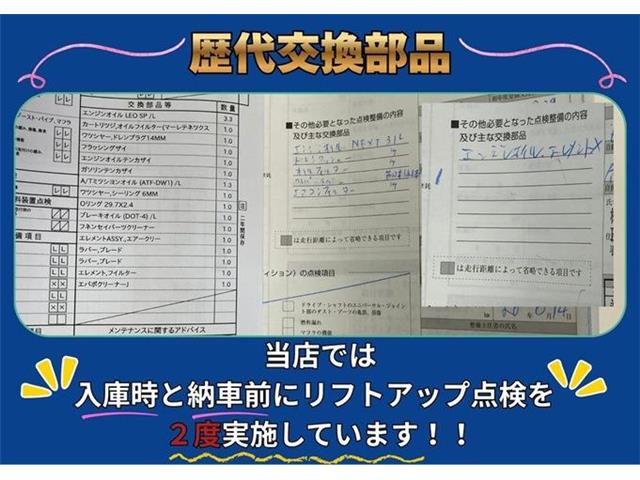 歴代交換部品
交換部品等 数量
エンジンオイル LEO SP /L 3.3
カートリッジ,オイルフイルター(マーレテネックス 1.0
ワツシャー,ドレンプラグ14MM 1.0
フラッシングザイ 1.0
エンジンオイルテンカザイ 1.0
ガソリンテンカザイ 1.0
A/Tミツションオイル (ATF-DW1) /L 1.0
ワツシャー,シーリング 6MM 1.0
Oリング 29.7X2.4 1.0
ブレーキオイル (DOT-4) /L 1.0
フネンセイパーツクリーナー 1.0
エレメントASSY., エアークリー 1.0
ラバー,ブレード 1.0
ラバー,ブレード 1.0
エレメント,フイルター 1.0
エバポクリーナーJ 1.0
メンテナンスに関するアドバイス
ブースト・パイプ、マフラ
料装置点検
備項目
二年間保存
■その他必要となった点検整備の内容
及び主な交換部品
エンジンオイル NEXT 3L
オイルフィルター
は走行距離によって省略できる項目です
ィション)の点検項目
ドライブ・シャフトのユニバーサル・ジョイン
ト部のダスト・ブーツの亀裂、損傷
燃料漏れ
マフラの機能
■その他必要となった点検整備の内容
及び主な交換部品
エンジンオイル、エレメント
は走行距離によって省略できる項目です
整備主任者の氏名
当店では
入庫時と納車前にリフトアップ点検を
２度実施しています！！